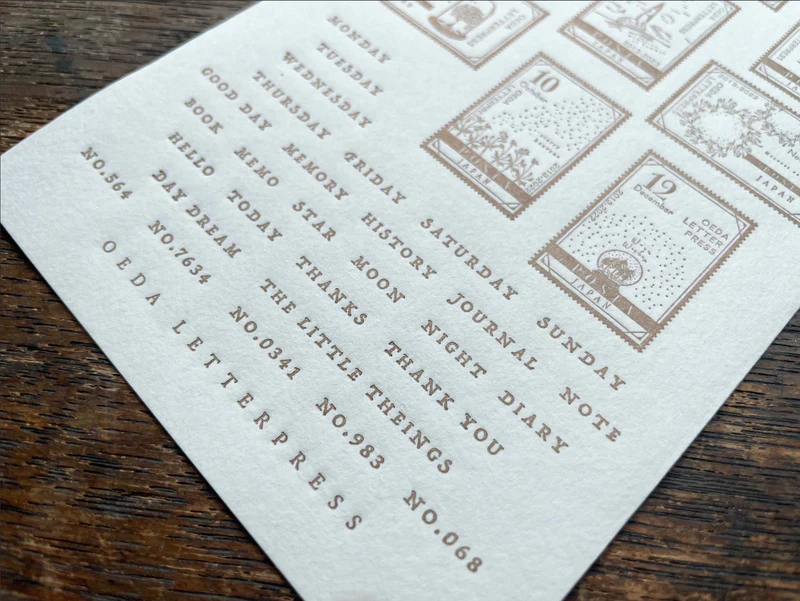 OEDA
LETTERPRESS
JAPAN
10
October
OEDA
LETTERPRESS
POSTA
JAPAN
JAPAN
12
December
OEDA
LETTER
PRESS
POSTA
JAPAN
MONDAY
TUESDAY
WEDNESDAY
THURSDAY FRIDAY SATURDAY SUNDAY
GOOD DAY MEMORY HISTORY JOURNAL NOTE
BOOK MEMO STAR MOON NIGHT DIARY
HELLO TODAY THANKS THANK YOU
DAY DREAM THE LITTLE THEINGS
NO.564 NO.7634 NO.0341 NO.983 NO.068
OEDA LETTERPRESS